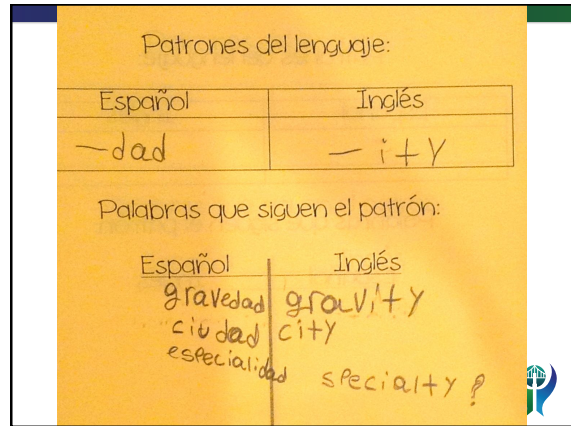 Patrones del lenguaje:
Español Inglés
-dad -ity
Palabras que siguen el patrón:
Español Inglés
gravedad gravity
ciudad city
especialidad
specialty ?